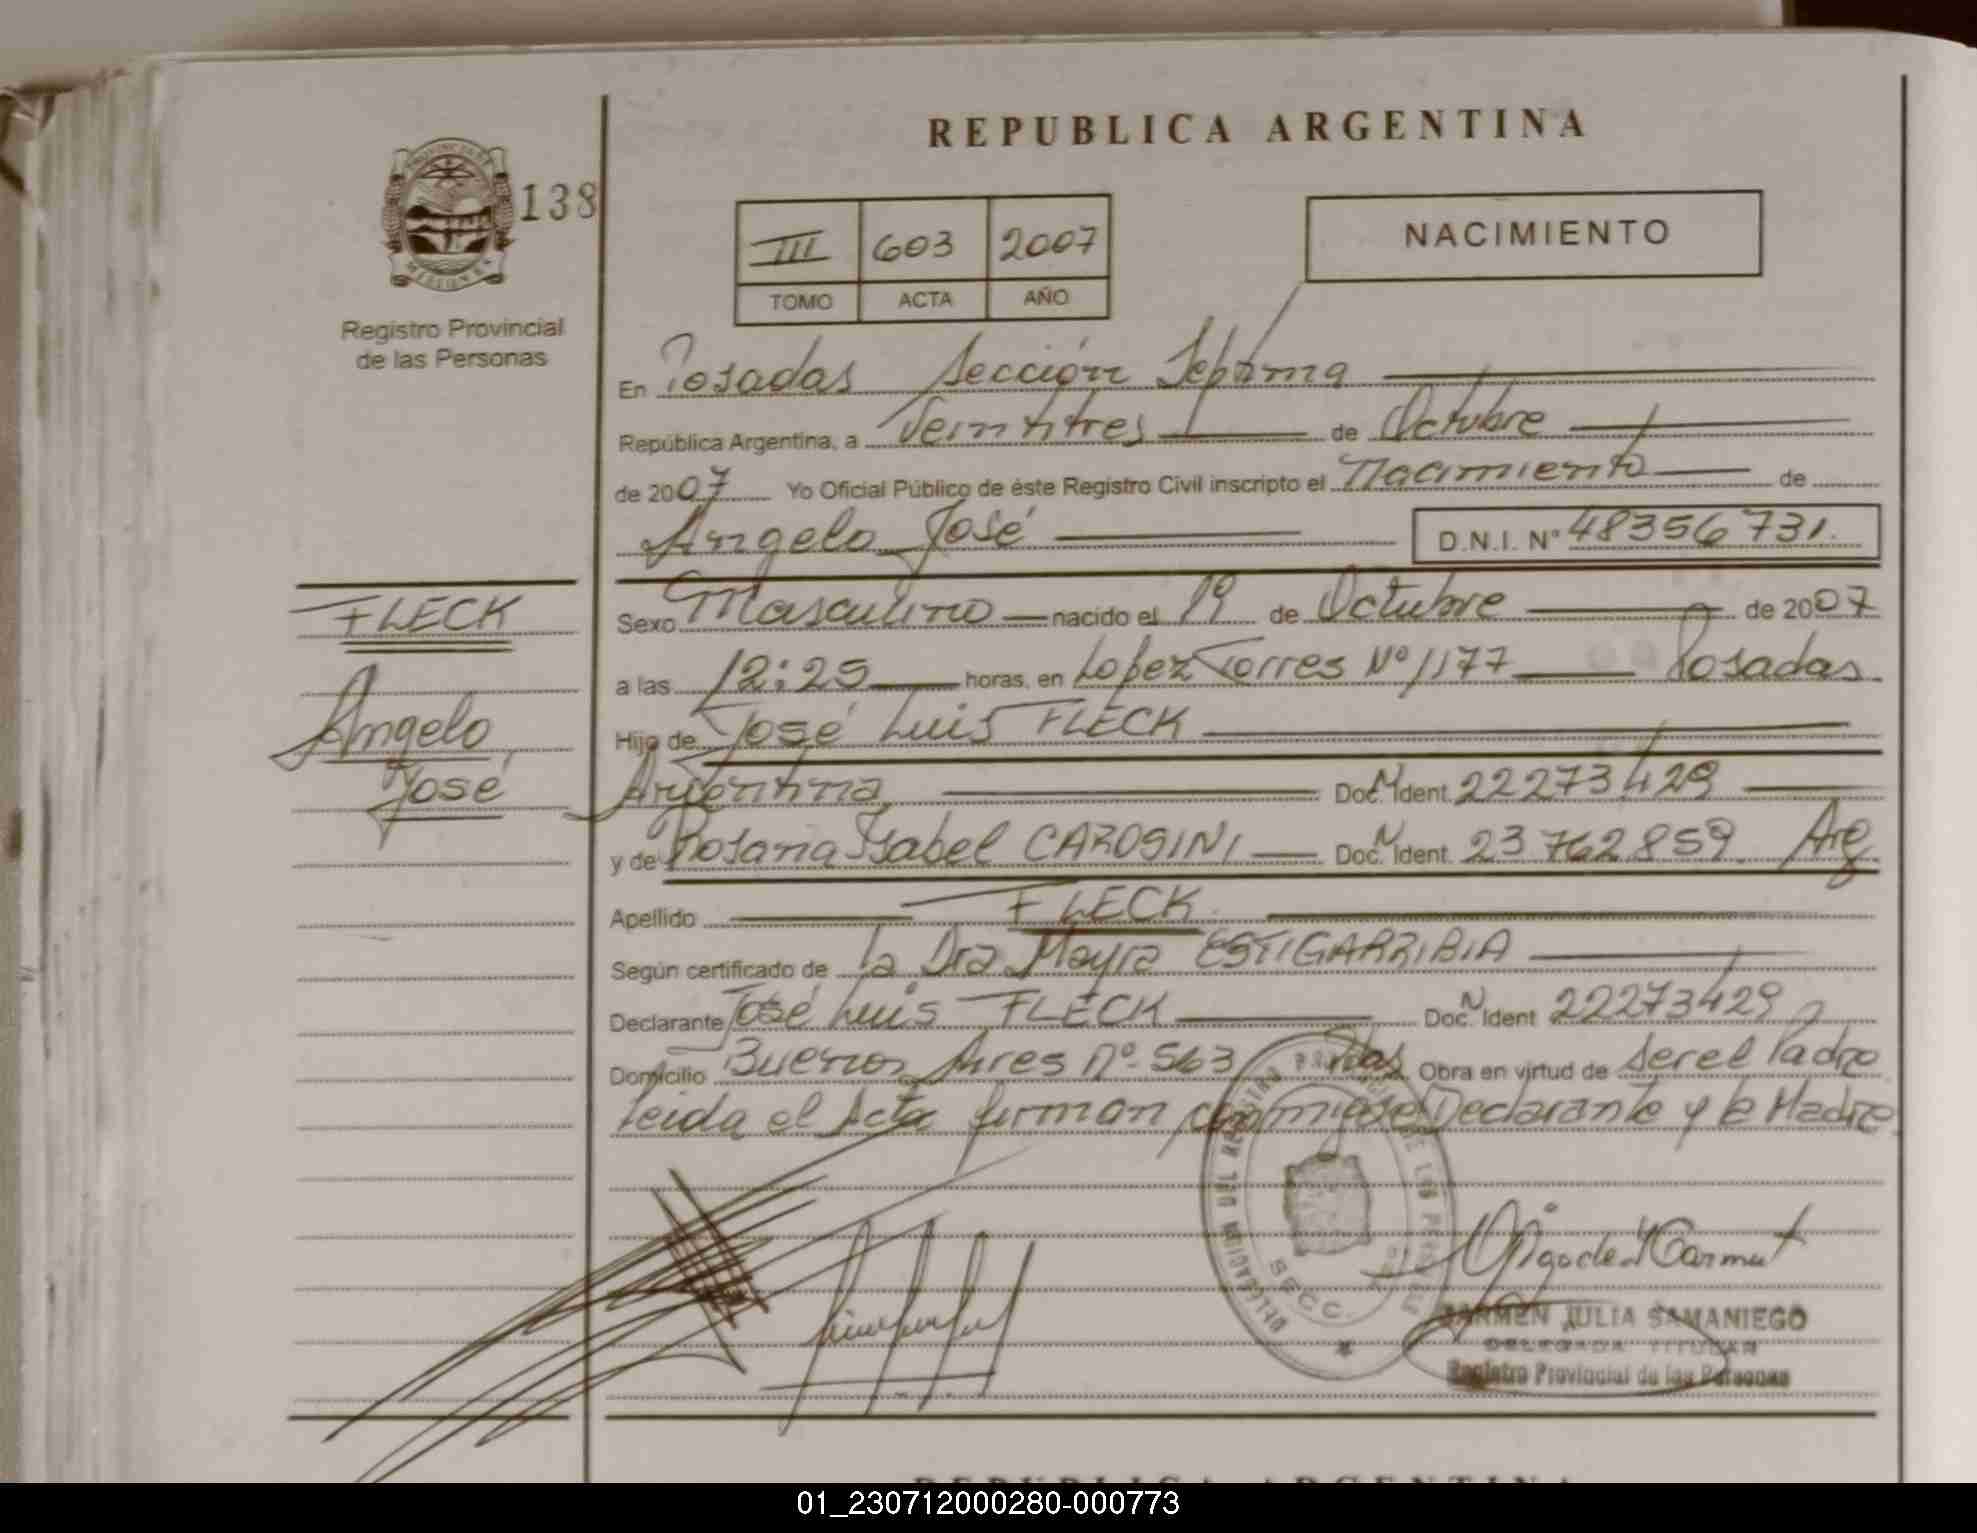 REPUBLICA ARGENTINA
138
III 603 2007
TOMO ACTA AÑO
NACIMIENTO
Registro Provincial
de las Personas
En Posadas Sección Séptima
República Argentina, a Veintitres de Octubre
de 2007 Yo Oficial Público de éste Registro Civil inscripto el Nacimiento de
Angelo José D.N.I. Nº 48356731.
FLECK
Angelo
José
Sexo Masculino nacido el 19 de Octubre de 2007
a las 12:25 horas, en Lopez Torres Nº 1177 Posadas
Hijo de José Luis FLECK
Argentina Doc. Ident. 22273429
y de Rosana Isabel CAROSINI Doc. Ident. 23762859 Arg
Apellido FLECK
Según certificado de la Dra Mayra ESTIGARRIBIA
Declarante José Luis FLECK Doc. Ident 22273429
Domicilio Buenos Aires Nº 563 Pdas Obra en virtud de ser el Padre
Leida el Acta firman conmigo el Declarante y la Madre
DELEGACION DEL REGISTRO PROVINCIAL DE LAS PERSONAS
SECC.
CARMEN JULIA SAMANIEGO
DELEGADA TITULAR
Registro Provincial de las Personas
REPUBLICA ARGENTINA
01_230712000280-000773